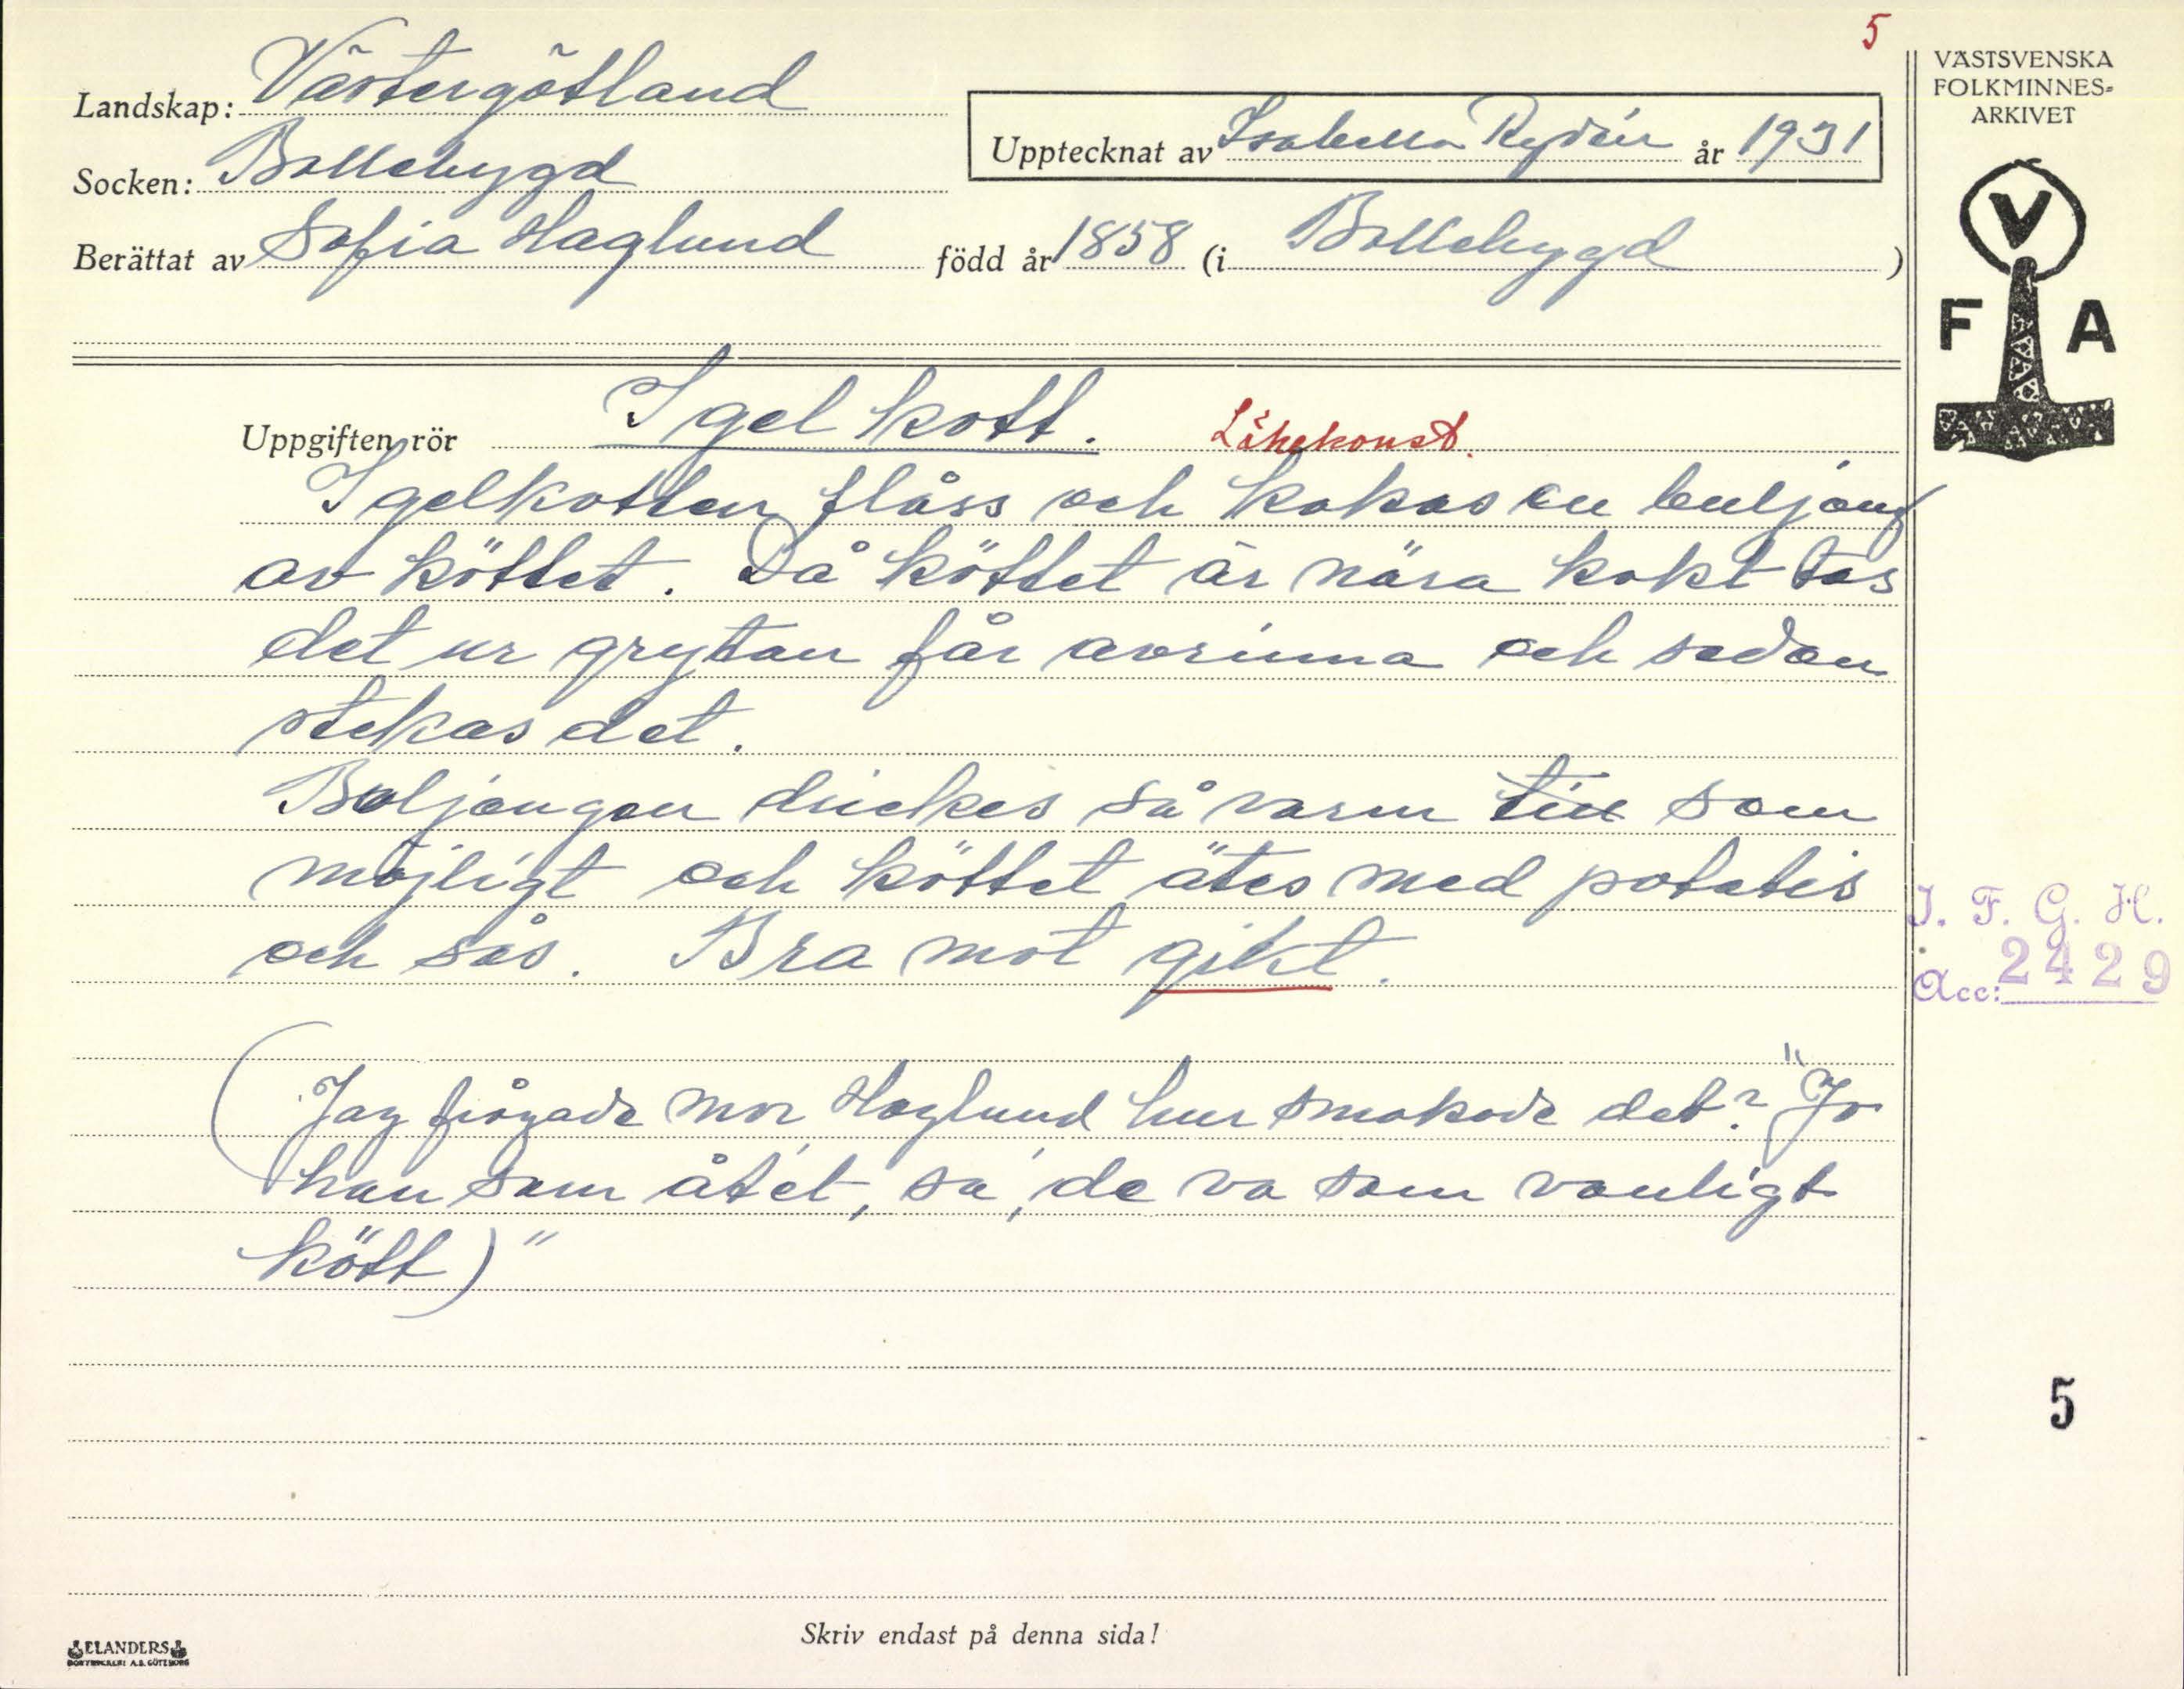 5
VÄSTSVENSKA
FOLKMINNES-
ARKIVET
V
F A
Landskap: Västergötland
Upptecknat av Isabella Rydén år 1931
Socken: Bollebygd
Berättat av Sofia Haglund född år 1858 (i Bollebygd)
Uppgiften rör Igelkott. Läkekonst.
Igelkotten flåss och kokas en buljong
av köttet. Då köttet är nära kokt tas
det ur grytan får avrinna och sedan
stekas det.
Buljongen drickes så varm till som
möjligt och köttet ätes med potatis
och sås. Bra mot gikt.
(Jag frågade mor Haglund hur smakade det? "Jo
han som åt'et, sa, de va som vanligt
kött)"
I. F. G. H.
Acc: 2429
5
Skriv endast på denna sida!
ELANDERS
BOKTRYCKERI A.B. GÖTEBORG